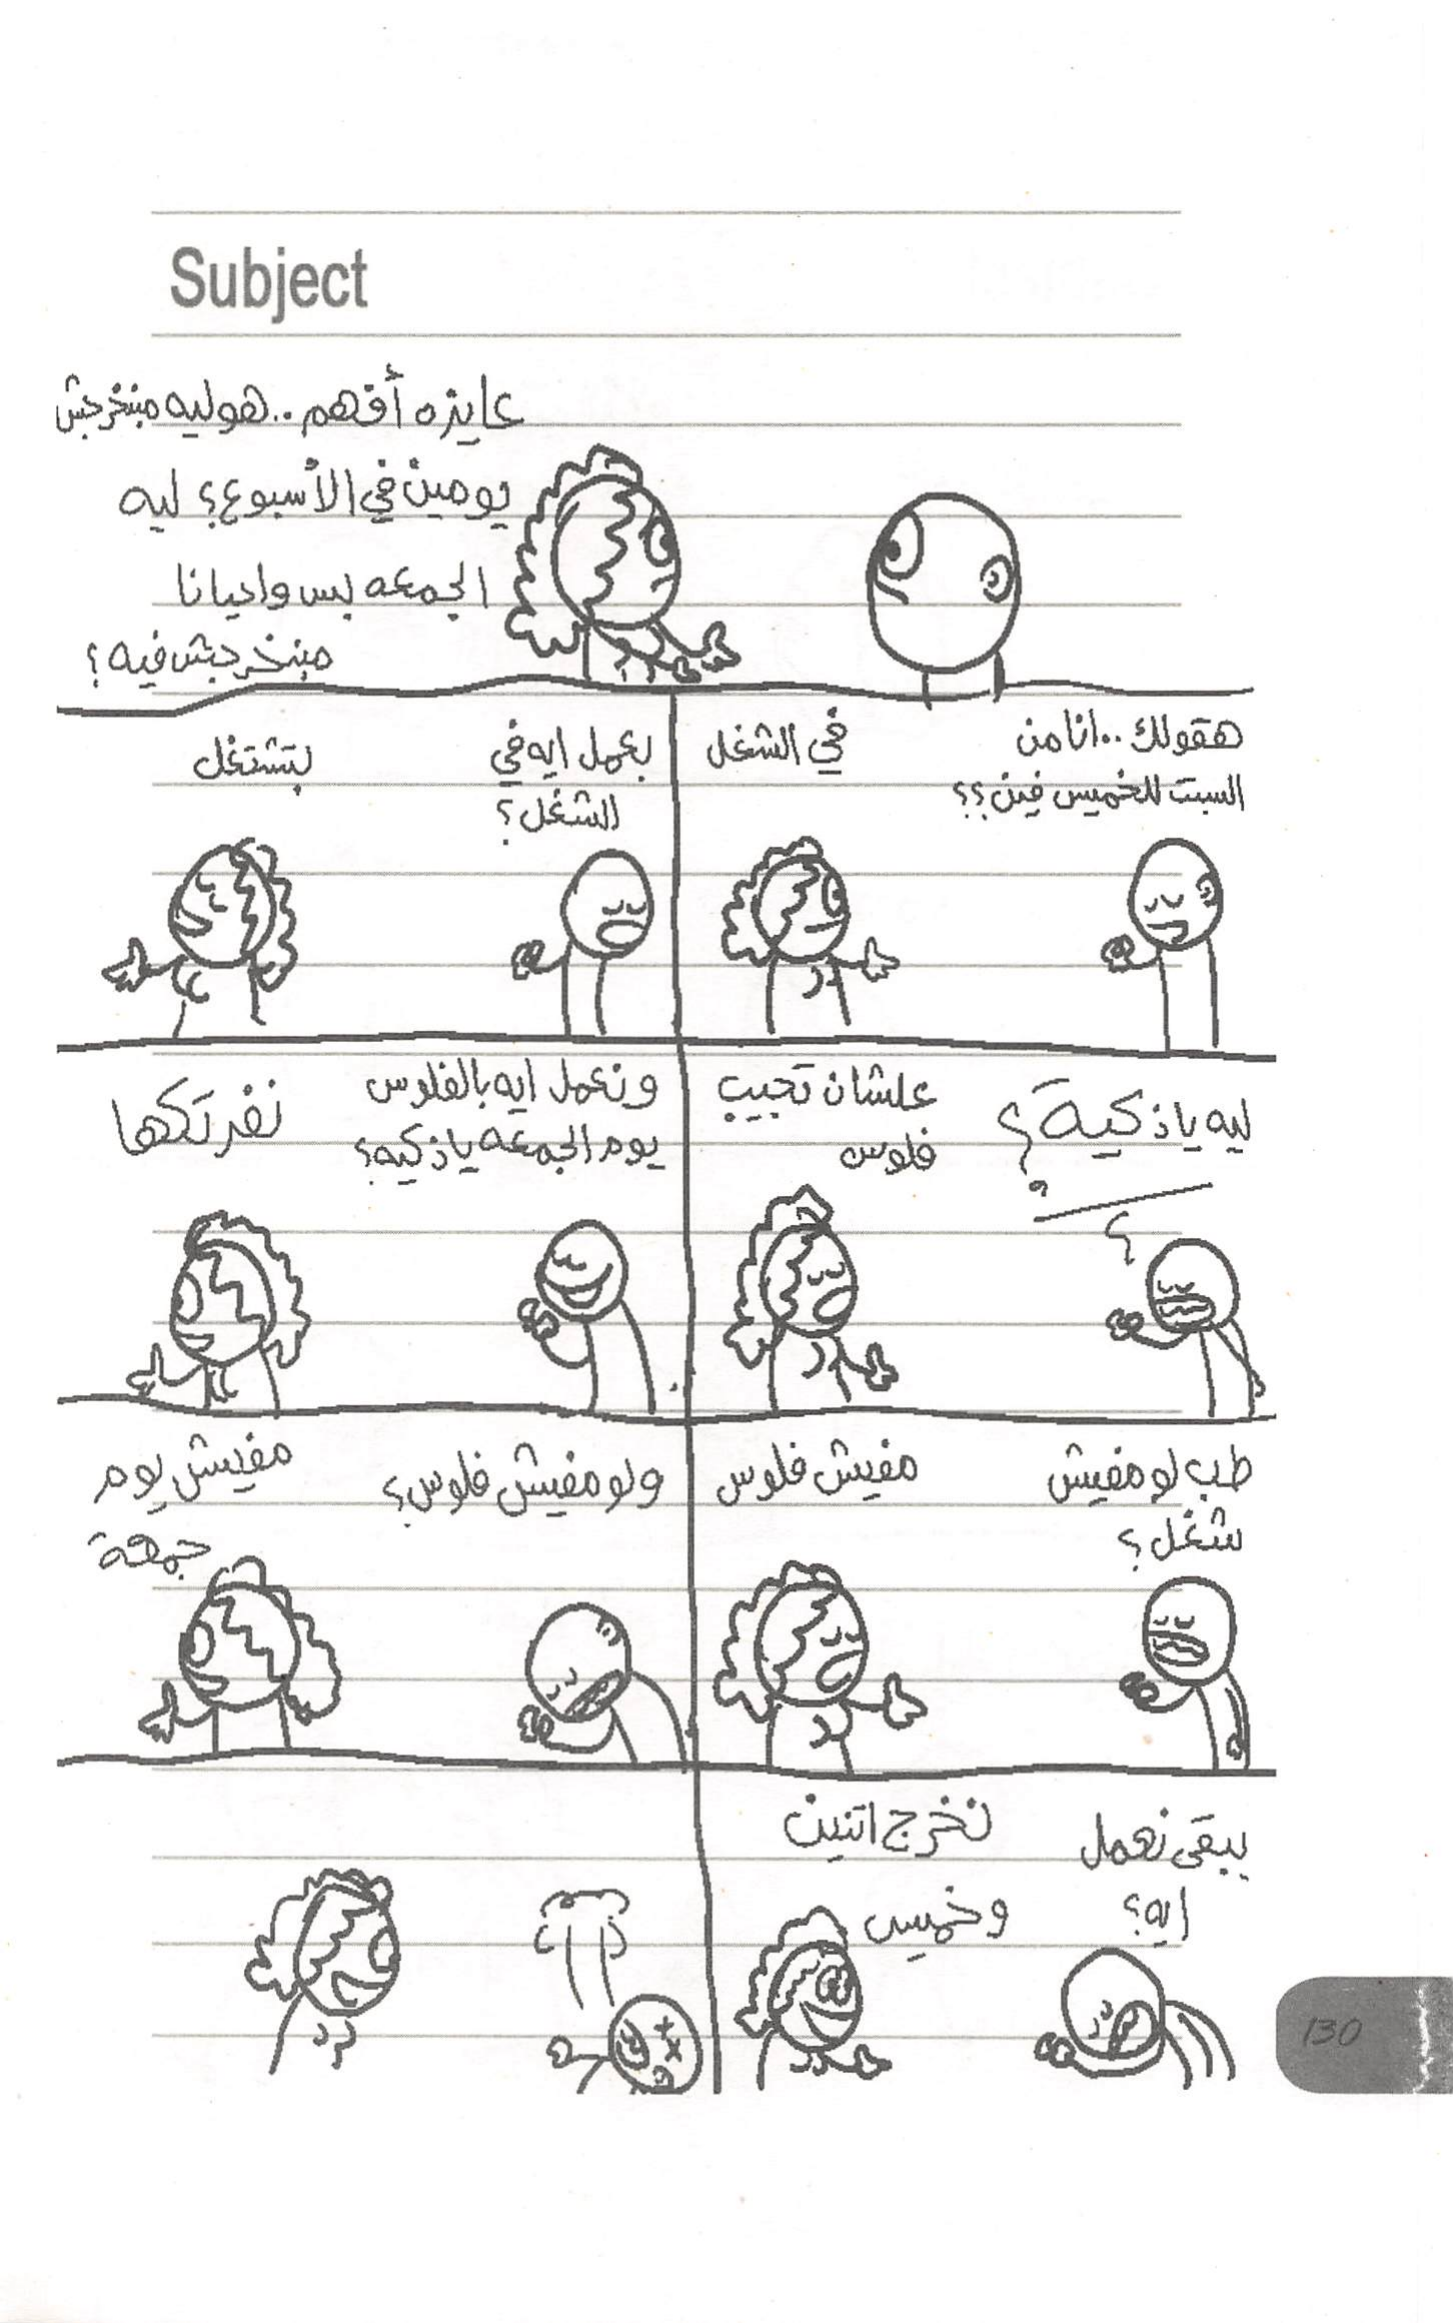 Subject
عايزه أفهم..هو ليه مبنخرجش
يومين في الأسبوع؟ ليه
الجمعه بس واحيانا
مبنخرجش فيه؟
هقولك..انا من
السبت للخميس فين؟؟
في الشغل
بعمل ايه في
الشغل؟
بتشتغل
ليه يا ذكيةَ؟
علشان تجيب
فلوس
ونعمل ايه بالفلوس
يوم الجمعه يا ذكيه؟
نفرتكها
طب لو مفيش
شغل؟
مفيش فلوس
ولو مفيش فلوس؟
مفيش يوم
جمعة
يبقى نعمل
ايه؟
نخرج اتنين
وخميس
130